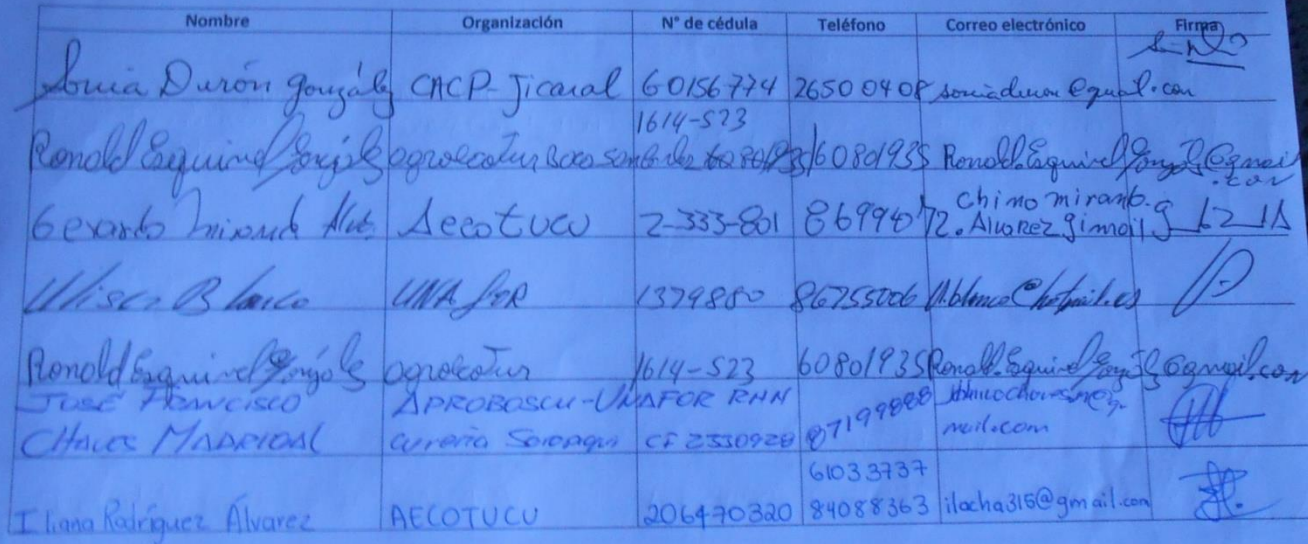 Nombre Organización N° de cédula Teléfono Correo electrónico Firma
Sonia Durón González CACP-Jicaral 60156774 26500408 soniaduron@gmail.com
1614-523
Ronald Esquivel Gonzáles agroecotur 60801935 Ronald.Esquivel Gonzáles@gmail
.com
Gerardo Miranda Aecotucu 2-333-801 86994072 chinomiramb.
Alvarez gimail
Ulises Blanco UNAFOR 1379880 86755006 U.blanco@hotmail.es
Ronald Esquivel Gonzáles agroecotur 1614-523 60801935 Ronald.Esquivel Gonzáles@gmail.com
JOSÉ FRANCISCO APROBOSCU-UNAFOR RHN 87199888
CHAVES MADRIGAL CF 2330928 mail.com
61033737
Iliana Rodríguez Álvarez AECOTUCU 206470320 84088363 ilacha315@gmail.com